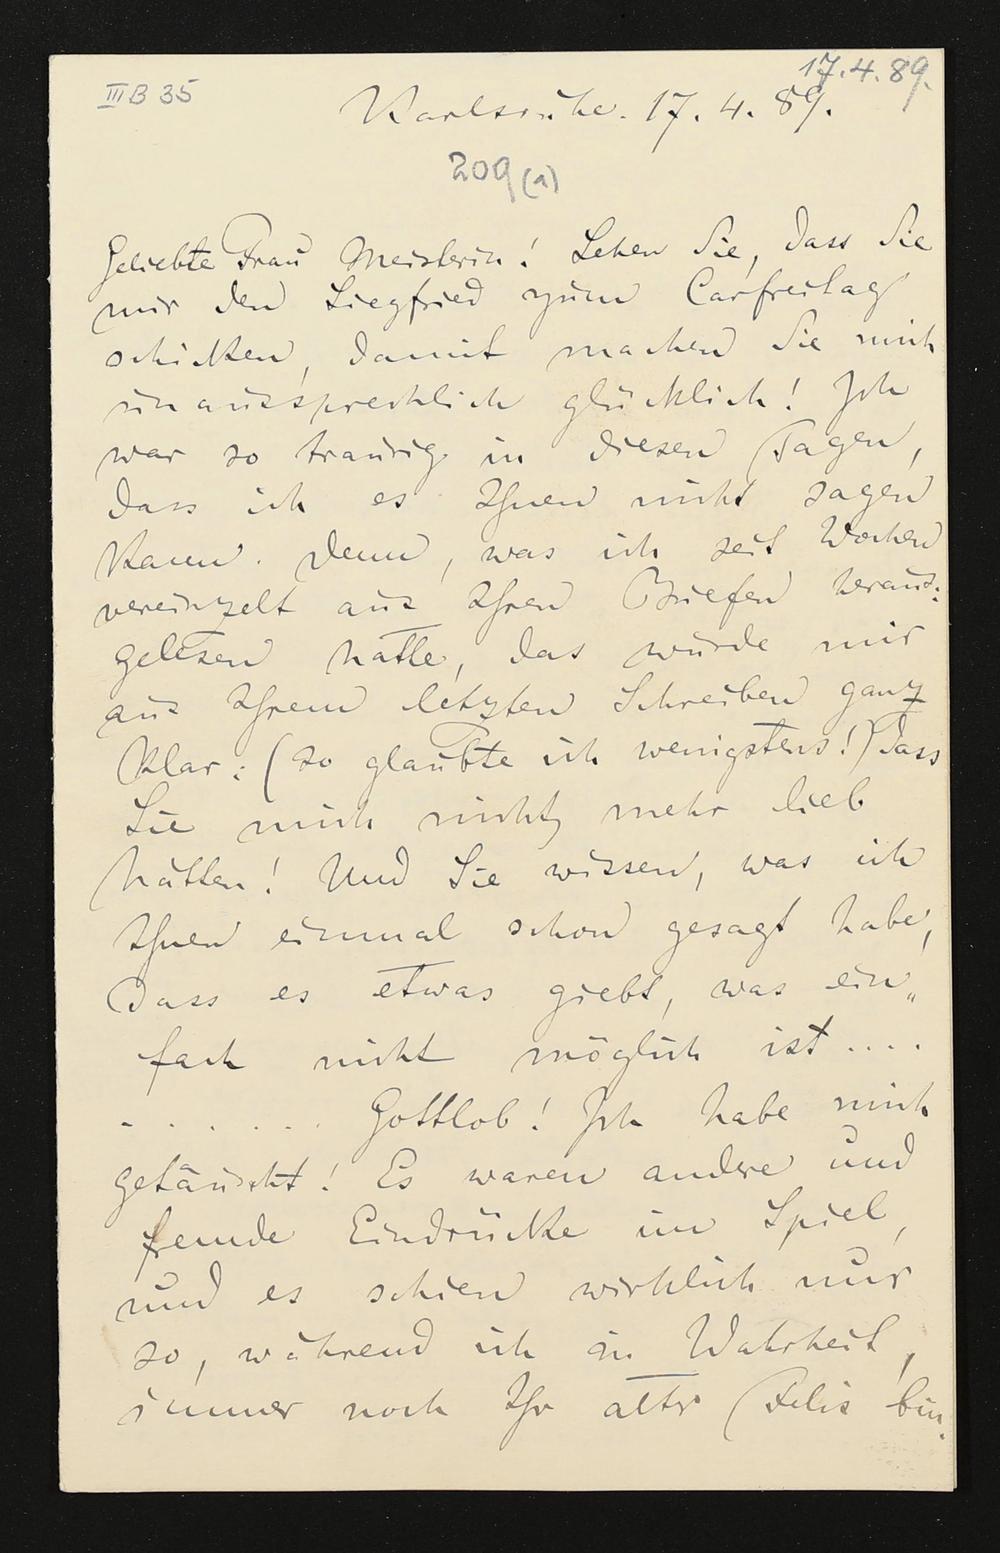 17.4.89.
III B 35
Karlsruhe. 17. 4. 89.
209(a)
Geliebte Frau Meisterin! Sehen Sie, dass Sie
mir den Siegfried zum Carfreitag
schicken, damit machen Sie mich
unaussprechlich glücklich! Ich
war so traurig in diesen Tagen,
dass ich es Ihnen nicht sagen
kann. Denn, was ich seit Wochen
vereinzelt aus Ihren Briefen heraus:
gelesen hatte, das wurde mir
aus Ihrem letzten Schreiben ganz
klar: (so glaubte ich wenigstens!) dass
Sie mich nicht mehr lieb
hätten! Und Sie wissen, was ich
Ihnen einmal schon gesagt habe,
dass es etwas giebt, was ein„
fach nicht möglich ist....
. . . . . . Gottlob! Ich habe mich
getäuscht! Es waren andere und
fremde Eindrücke im Spiel,
und es schien wirklich nur
so, während ich in Wahrheit,
immer noch Ihr alter Felix bin.